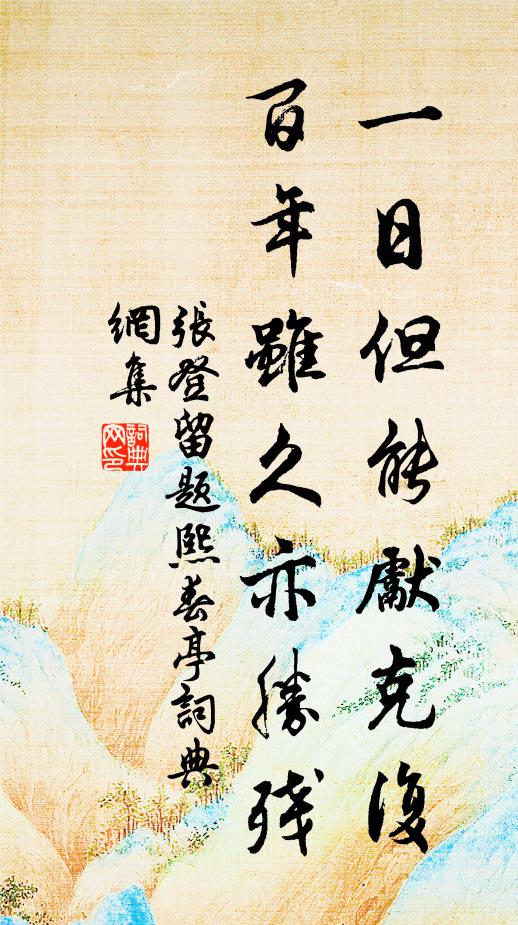 一日但能獻克復
百年雖久亦勝殘
張登留題熙春亭詞典
網集
詞典網印